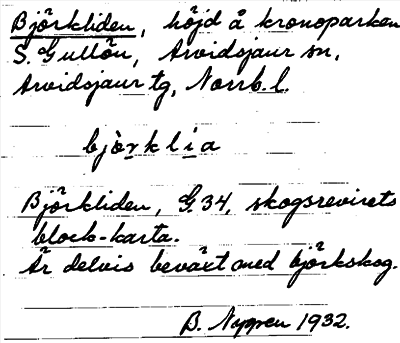 Björkliden, höjd å kronoparken
S. Gullön, Arvidsjaur sn,
Arvidsjaur tg, Norrb. l.
bjòrklia
Björkliden, G.34, skogsrevirets
block-karta.
Är delvis beväxt med björkskog.
B. 1932.